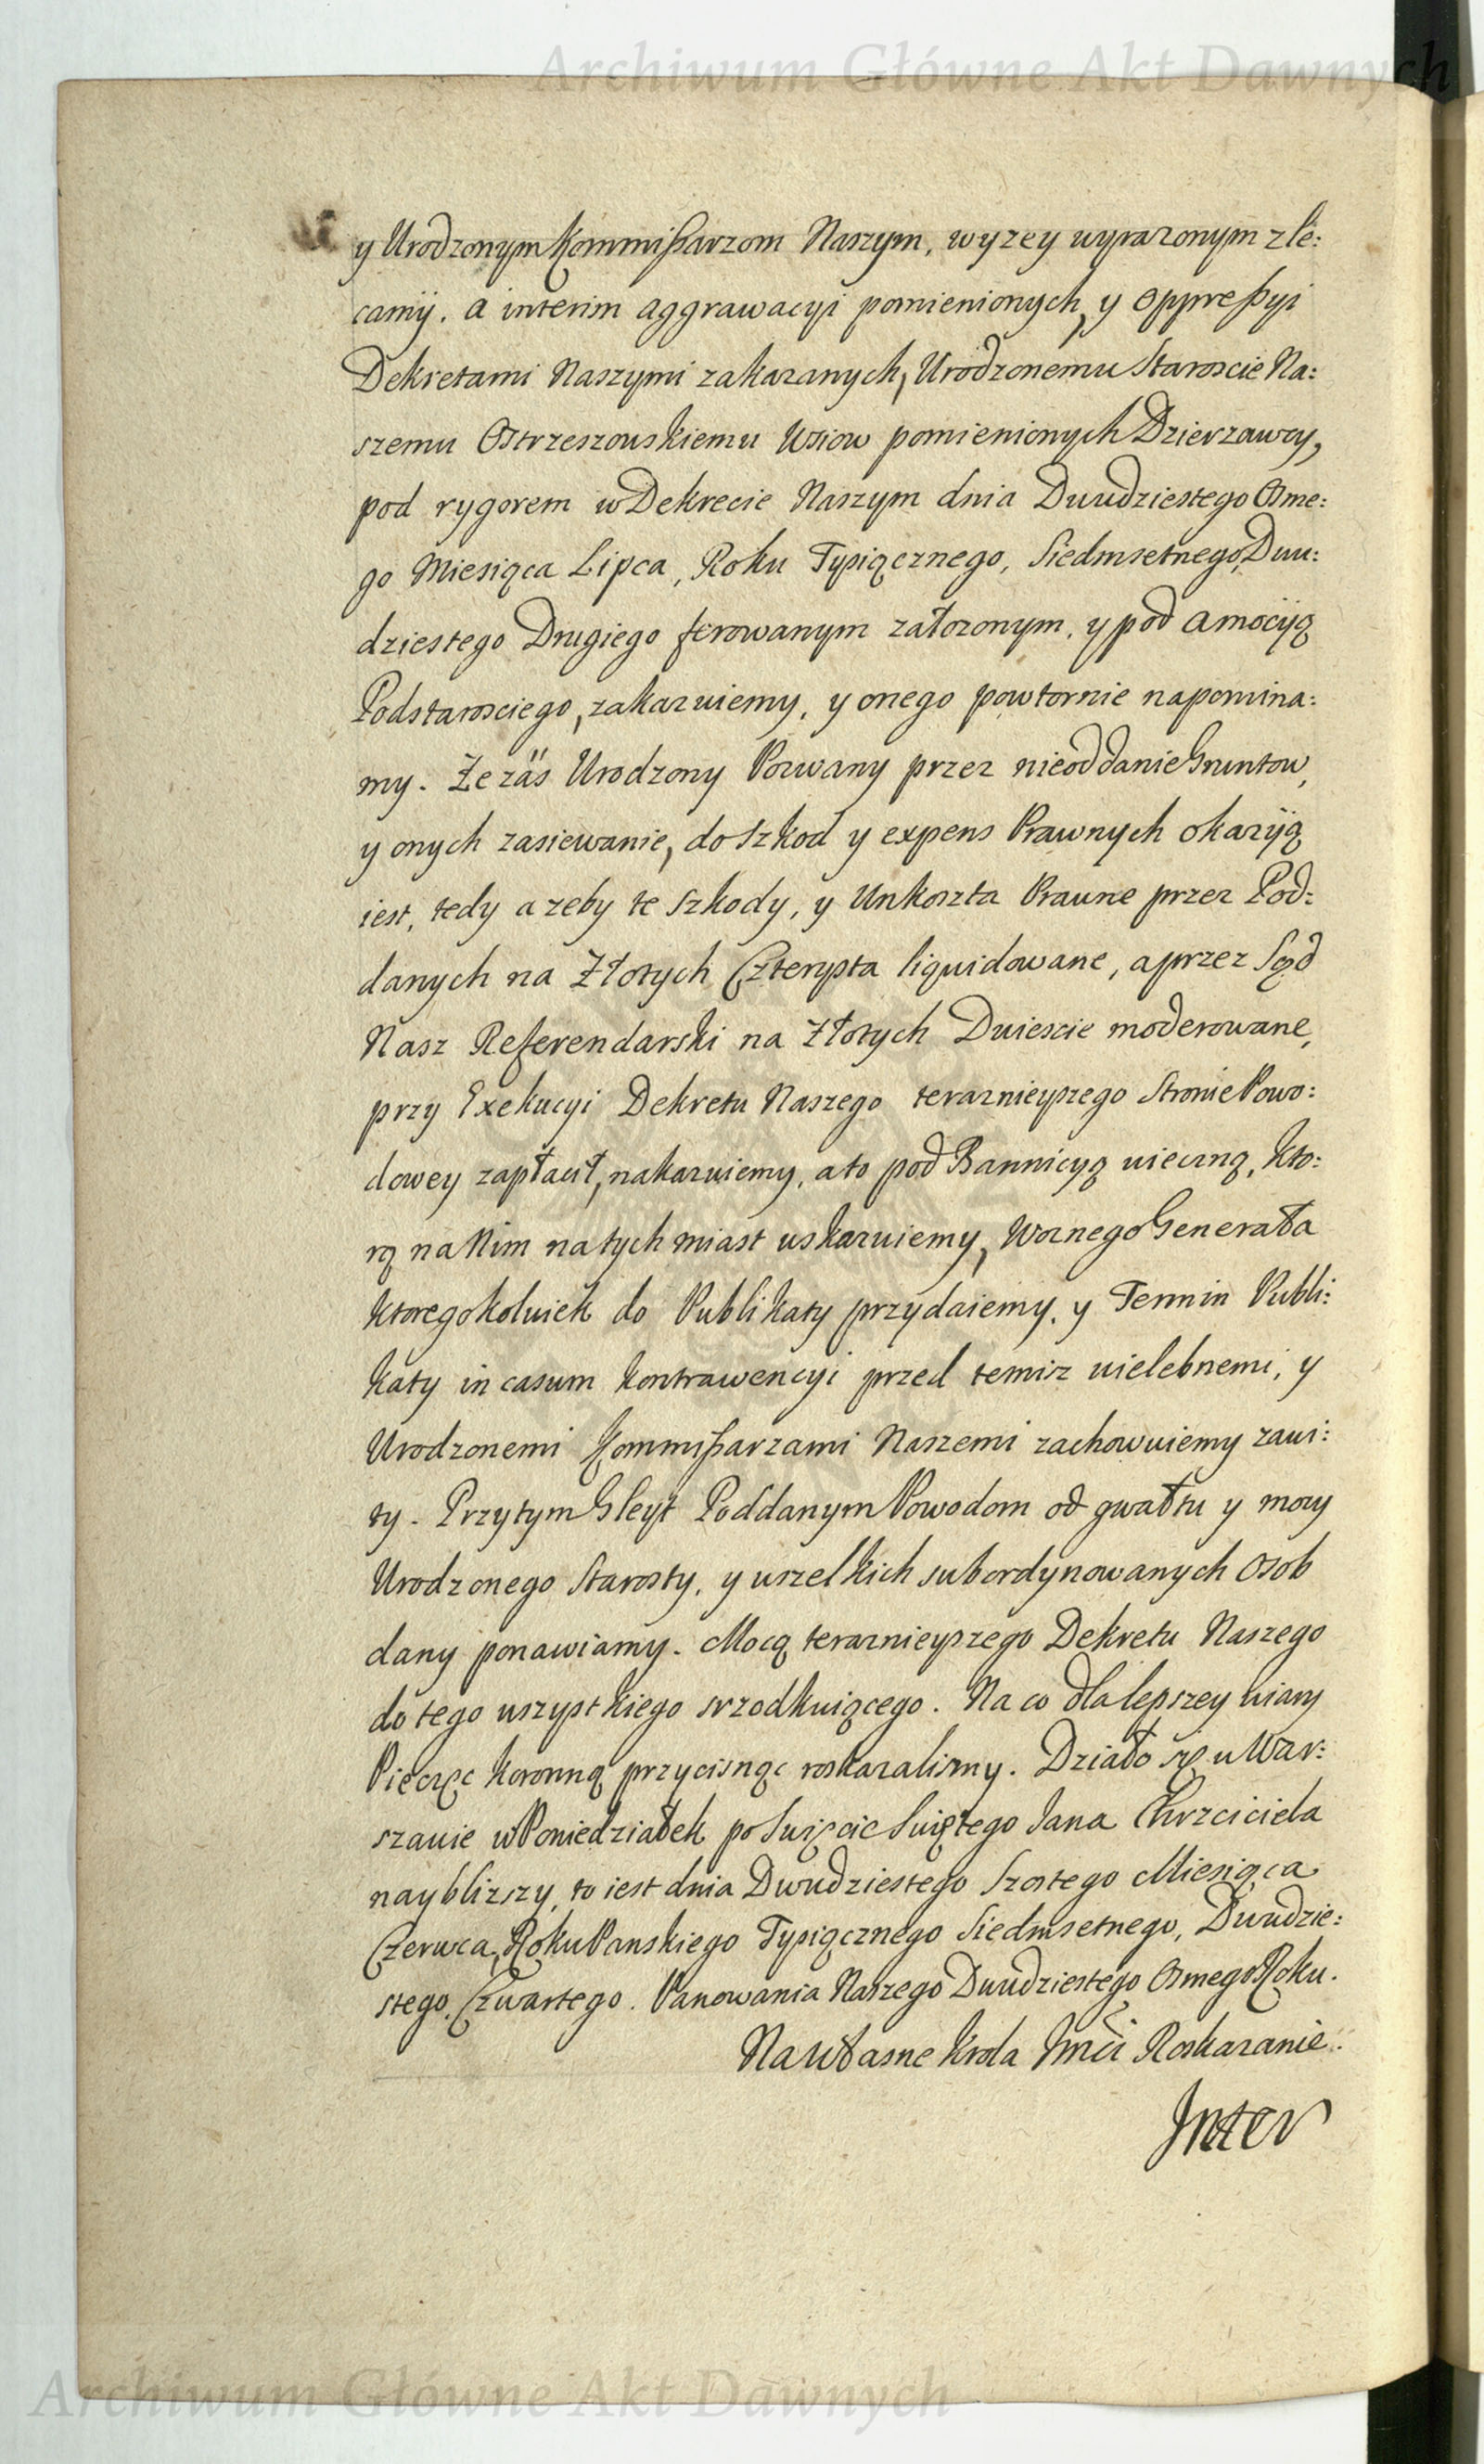 Archiwum Główne Akt Dawnych
y Urodzonym Kommißarzom Naszym, wyzey wyrazonym zle:
camÿ. a interim aggrawacyi pomienionych, y oppreßyi
Dekretami Naszymi zakazanych, Urodzonemu Staroscie Na:
szemu Ostrzeszowskiemu Wsiow pomienionych Dzierzawcy,
pod rygorem w Dekrecie Naszym dnia Dwudziestego Osme:
go Miesiąca Lipca, Roku Tysiącznego, Siedmsetnego, Dwu:
dziestego Drugiego ferowanym załozonym, y pod amocÿą
Podstarosciego, zakazuiemy, y onego powtornie napomina:
my. Ze zas Urodzony Pozwany przez nieoddanie Gruntow,
y onych zasiewanie, do szkod y expens Prawnych okazÿą
iest, tedy azeby te szkody, y Unkoszta Prawne przez Pod:
danych na Złotych Czterysta liquidowane, a przez Sąd
Nasz Referendarski na Złotych Dwiescie moderowane,
przy Exekucyi Dekretu Naszego terazniejszego Stronie Powo:
dowey zapłacił, nakazuiemy, a to pod Bannicyą wieczną, kto:
rą na Nim natychmiast wskazuiemy, Woznego Generała
ktoregokolwiek do Publikaty przydaiemy, y Termin Publi:
katy in casum kontrawencyi przed temisz wielebnemi, y
Urodzonemi Kommißarzami Naszemi zachowuiemy zawi:
ty. Przytym Gleyt Poddanym Powodom od gwałtu y mocy
Urodzonego Starosty, y wszelkich subordynowanych Osob
dany ponawiamy. Mocą terazniejszego Dekretu Naszego
do tego wszystkiego srzodkuiącego. Na co dla lepszey wiary
Pieczęc koronną przycisnąc roskazalismy. Działo się w War:
szawie w Poniedziałek po Swięcie Swiętego Jana Chrzciciela
nayblizszy, to iest dnia Dwudziestego Szostego Miesiąca
Czerwca, Roku Panskiego Tysiącznego Siedmsetnego, Dwudzie:
stego, Czwartego. Panowania Naszego Dwudziestego Osmego Roku.
Na własne Krola Jmci Roskazanie.
Inter
Archiwum Główne Akt Dawnych